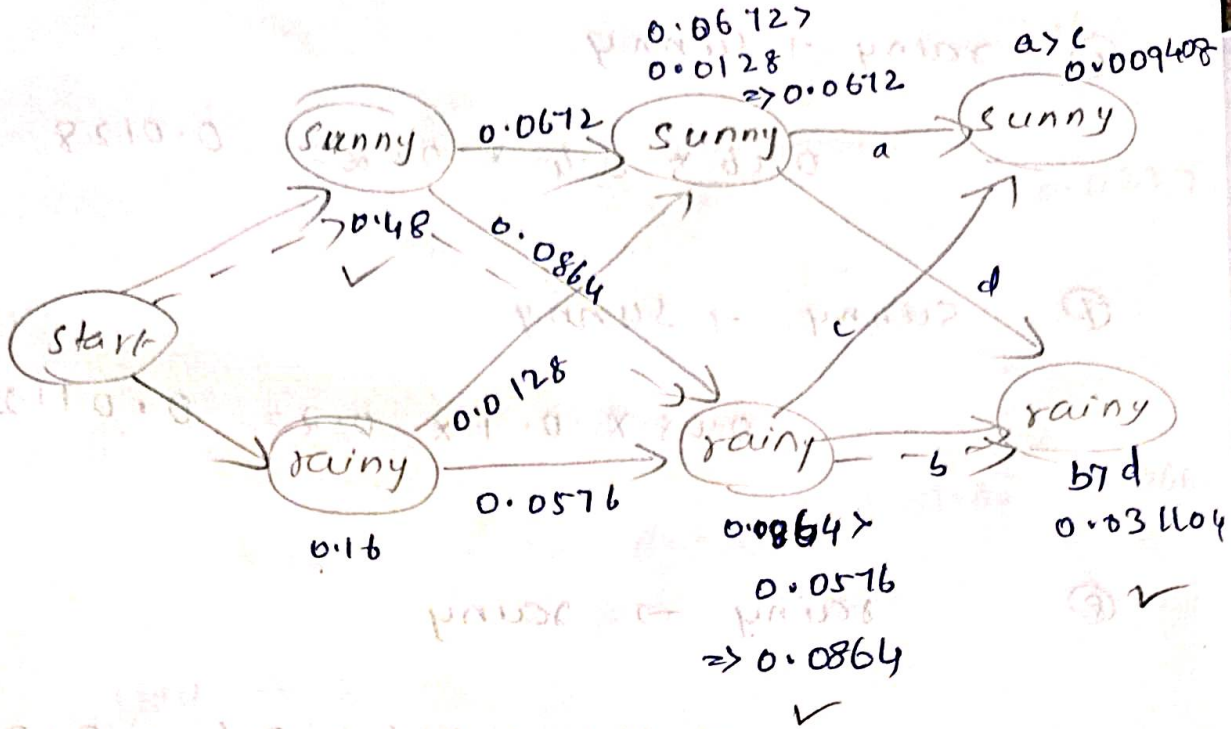 0.0672>
0.0128
=> 0.0672
a>c
0.009408
sunny
0.0672
sunny
a
sunny
0.48
0.0864
d
start
c
0.0128
rainy
0.0576
rainy
b
rainy
0.16
0.0864>
0.0576
=> 0.0864
b7d
0.031104